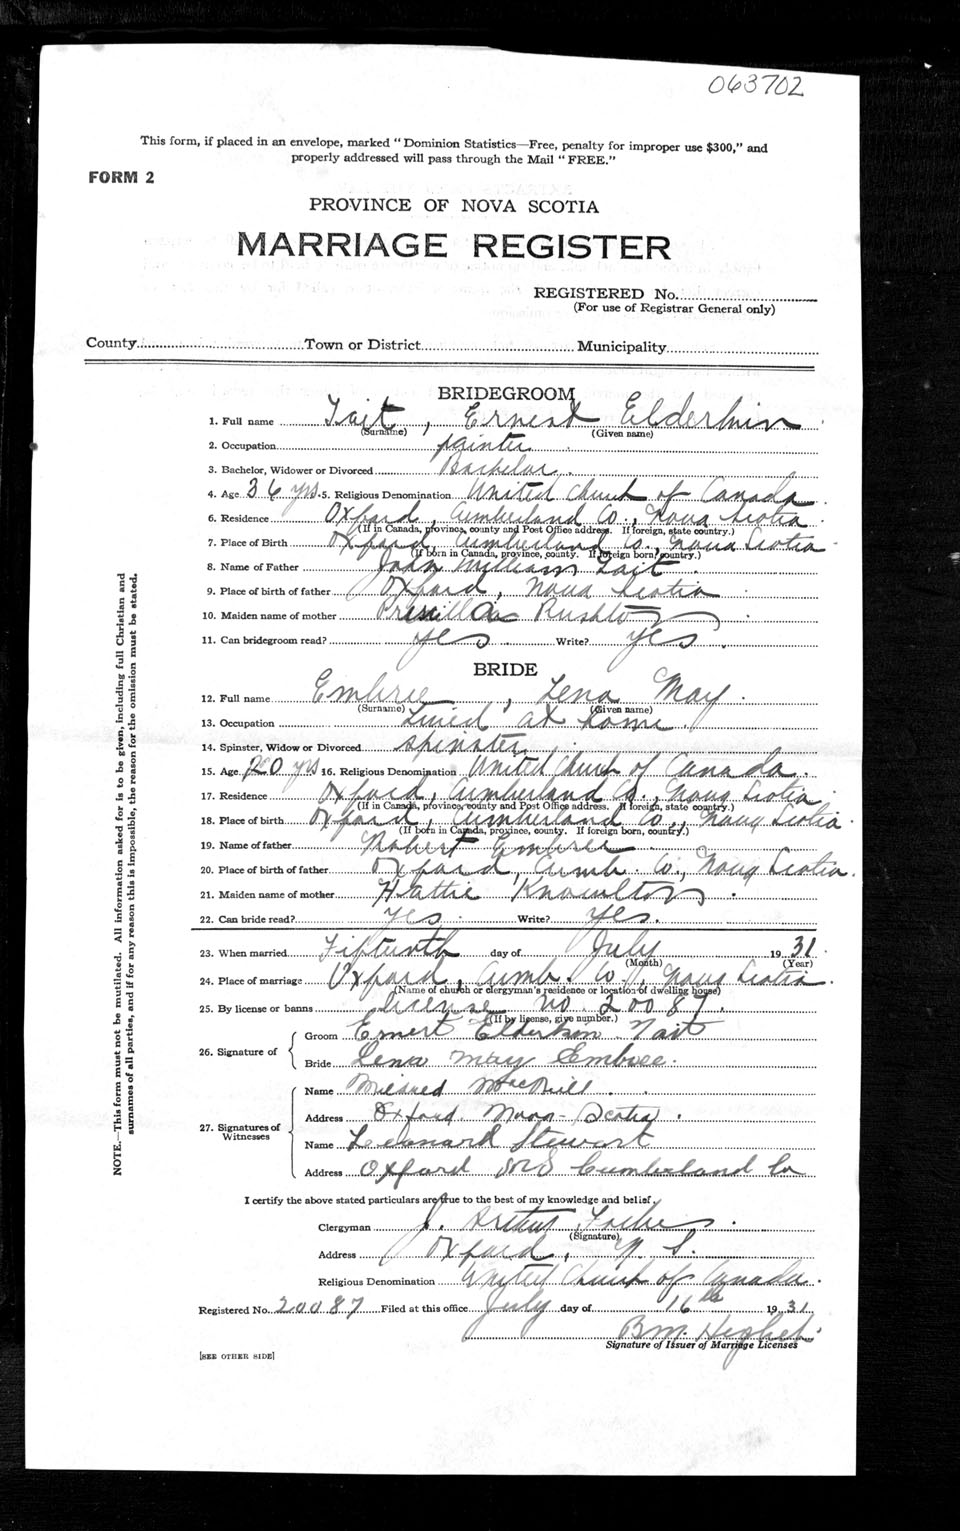 063702
This form, if placed in an envelope, marked "Dominion Statistics—Free, penalty for improper use $300," and
properly addressed will pass through the Mail "FREE."
FORM 2
PROVINCE OF NOVA SCOTIA
MARRIAGE REGISTER
REGISTERED No.
(For use of Registrar General only)
County Town or District Municipality
BRIDEGROOM
1. Full name Tait, Ernest Elderkin
(Surname) (Given name)
2. Occupation painter
3. Bachelor, Widower or Divorced Bachelor
4. Age 36 yrs. 5. Religious Denomination United Church of Canada
6. Residence Oxford, Cumberland Co., Nova Scotia
(If in Canada, province, county and Post Office address. If foreign, state country.)
7. Place of Birth Oxford, Cumberland Co., Nova Scotia
(If born in Canada, province, county. If foreign born, country.)
8. Name of Father John William Tait
9. Place of birth of father Oxford, Nova Scotia
10. Maiden name of mother Priscilla Rushton
11. Can bridegroom read? yes Write? yes
BRIDE
12. Full name Embree, Lena May
(Surname) (Given name)
13. Occupation Lived at home
14. Spinster, Widow or Divorced spinster
15. Age 20 yrs 16. Religious Denomination United Church of Canada
17. Residence Oxford, Cumberland Co., Nova Scotia
(If in Canada, province, county and Post Office address. If foreign, state country.)
18. Place of birth Oxford, Cumberland Co., Nova Scotia
(If born in Canada, province, county. If foreign born, country.)
19. Name of father Robert Embree
20. Place of birth of father Oxford, Cumb. Co., Nova Scotia.
21. Maiden name of mother Hattie Knowlton
22. Can bride read? yes Write? yes.
23. When married Fifteenth day of July 19 31
(Month) (Year)
24. Place of marriage Oxford, Cumb. Co., Nova Scotia.
(Name of church or clergyman's residence or location of dwelling house)
25. By license or banns license no. 20087.
(If by license, give number.)
26. Signature of
Groom Ernest Elderkin Tait
Bride Lena May Embree.
27. Signatures of
Witnesses
Name Mildred MacNeill
Address Oxford Nova-Scotia.
Name Leonard Stewart
Address Oxford NS Cumberland Co
I certify the above stated particulars are true to the best of my knowledge and belief.
Clergyman J. Arthur Forbes
(Signature)
Address Oxford, N. S.
Religious Denomination United Church of Canada.
Registered No. 20087 Filed at this office July day of 16th 19 31
B.M.
Signature of Issuer of Marriage Licenses
[SEE OTHER SIDE]
NOTE.—This form must not be mutilated. All information asked for is to be given, including full Christian and
surnames of all parties, and if for any reason this is impossible, the reason for the omission must be stated.